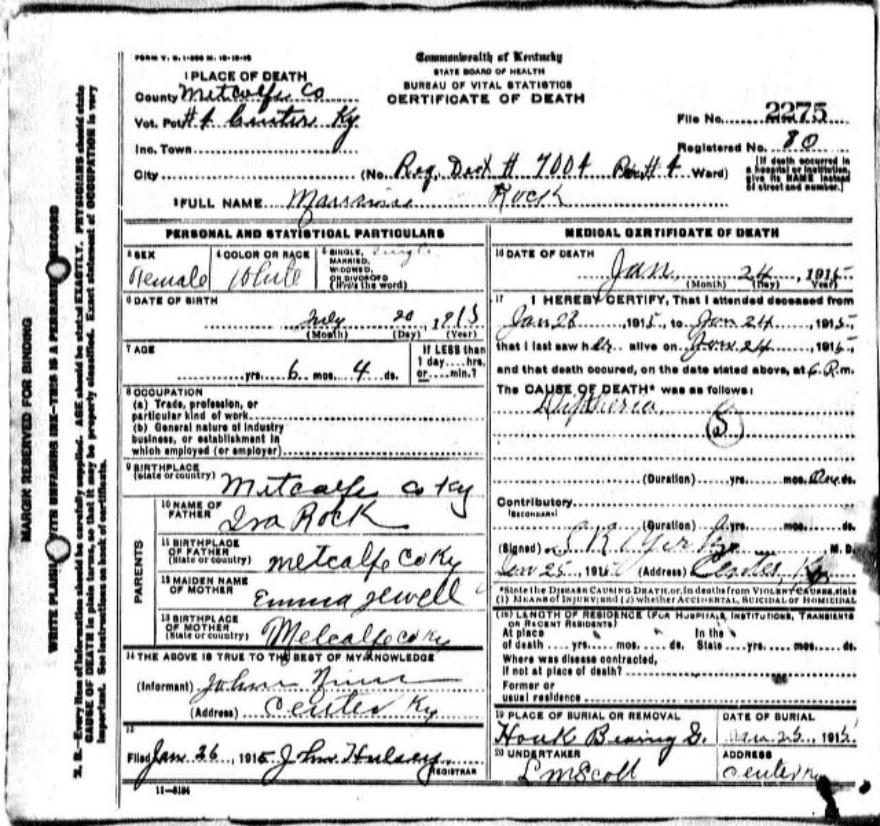 FORM V. S. 1-
Commonwealth of Kentucky
STATE BOARD OF HEALTH
BUREAU OF VITAL STATISTICS
CERTIFICATE OF DEATH
1 PLACE OF DEATH
County Metcalfe Co
Vot. Pct #4 Center Ky
Inc. Town
City (No. Reg. Dist # 7004 #4 Ward)
File No. 2275
Registered No. 80
[If death occurred in a hospital or institution, give its NAME instead of street and number.]
2 FULL NAME Rock
PERSONAL AND STATISTICAL PARTICULARS
3 SEX
Female
4 COLOR OR RACE
White
5 SINGLE, MARRIED, WIDOWED, OR DIVORCED (Write the word)
Single
6 DATE OF BIRTH
July 20, 1915
(Month) (Day) (Year)
7 AGE
yrs. 6 mos. 4 ds.
If LESS than 1 day....hrs. or....min.?
8 OCCUPATION
(a) Trade, profession, or particular kind of work
(b) General nature of industry business, or establishment in which employed (or employer)
9 BIRTHPLACE (State or country)
Metcalfe Co Ky
PARENTS
10 NAME OF FATHER
Ira Rock
11 BIRTHPLACE OF FATHER (State or country)
Metcalfe Co Ky
12 MAIDEN NAME OF MOTHER
Emma Jewell
13 BIRTHPLACE OF MOTHER (State or country)
Metcalfe Co Ky
14 THE ABOVE IS TRUE TO THE BEST OF MY KNOWLEDGE
(Informant) John
(Address) Center Ky
15
Filed Jan 26, 1915 John Hulsey
REGISTRAR
11-5184
MEDICAL CERTIFICATE OF DEATH
16 DATE OF DEATH
Jan 24, 1915
(Month) (Day) (Year)
17 I HEREBY CERTIFY, That I attended deceased from
Jan 23, 1915, to Jan 24, 1915,
that I last saw her alive on Jan 24, 1915,
and that death occured, on the date stated above, at 6 P.m.
The CAUSE OF DEATH* was as follows:
Diptheria
5
(Duration) yrs. mos. ds.
Contributory
(SECONDARY)
(Duration) yrs. mos. ds.
(Signed) S R M. D.
Jan 25, 1915 (Address) Center, Ky
*State the DISEASE CAUSING DEATH, or, in deaths from VIOLENT CAUSES, state (1) MEANS OF INJURY; and (2) whether ACCIDENTAL, SUICIDAL OR HOMICIDAL
(18) LENGTH OF RESIDENCE (FOR HOSPITALS, INSTITUTIONS, TRANSIENTS OR RECENT RESIDENTS)
At place of death yrs. mos. ds. In the State yrs. mos. ds.
Where was disease contracted, if not at place of death?
Former or usual residence
19 PLACE OF BURIAL OR REMOVAL
DATE OF BURIAL
Jan 25, 1915
20 UNDERTAKER
L M Scott
ADDRESS
Center Ky
MARGIN RESERVED FOR BINDING
WRITE PLAINLY WITH UNFADING INK—THIS IS A PERMANENT RECORD
N. B.—Every item of information should be carefully supplied. AGE should be stated EXACTLY. PHYSICIANS should state
CAUSE OF DEATH in plain terms, so that it may be properly classified. Exact statement of OCCUPATION is very
important. See instructions on back of certificate.